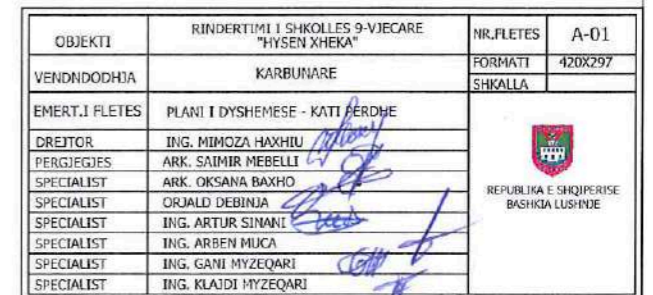 OBJEKTI RINDERTIMI I SHKOLLES 9-VJECARE "HYSEN XHEKA" NR.FLETES A-01
VENDNDODHJA KARBUNARE FORMATI 420X297
SHKALLA
EMERT.I FLETES PLANI I DYSHEMESE - KATI PERDHE
DREJTOR ING. MIMOZA HAXHIU
PERGJEGJES ARK. SAIMIR MEBELLI
SPECIALIST ARK. OKSANA BAXHO
SPECIALIST ORJALD DEBINJA
SPECIALIST ING. ARTUR SINANI
SPECIALIST ING. ARBEN MUCA
SPECIALIST ING. GANI MYZEQARI
SPECIALIST ING. KLAJDI MYZEQARI
REPUBLIKA E SHQIPERISE
BASHKIA LUSHNJE